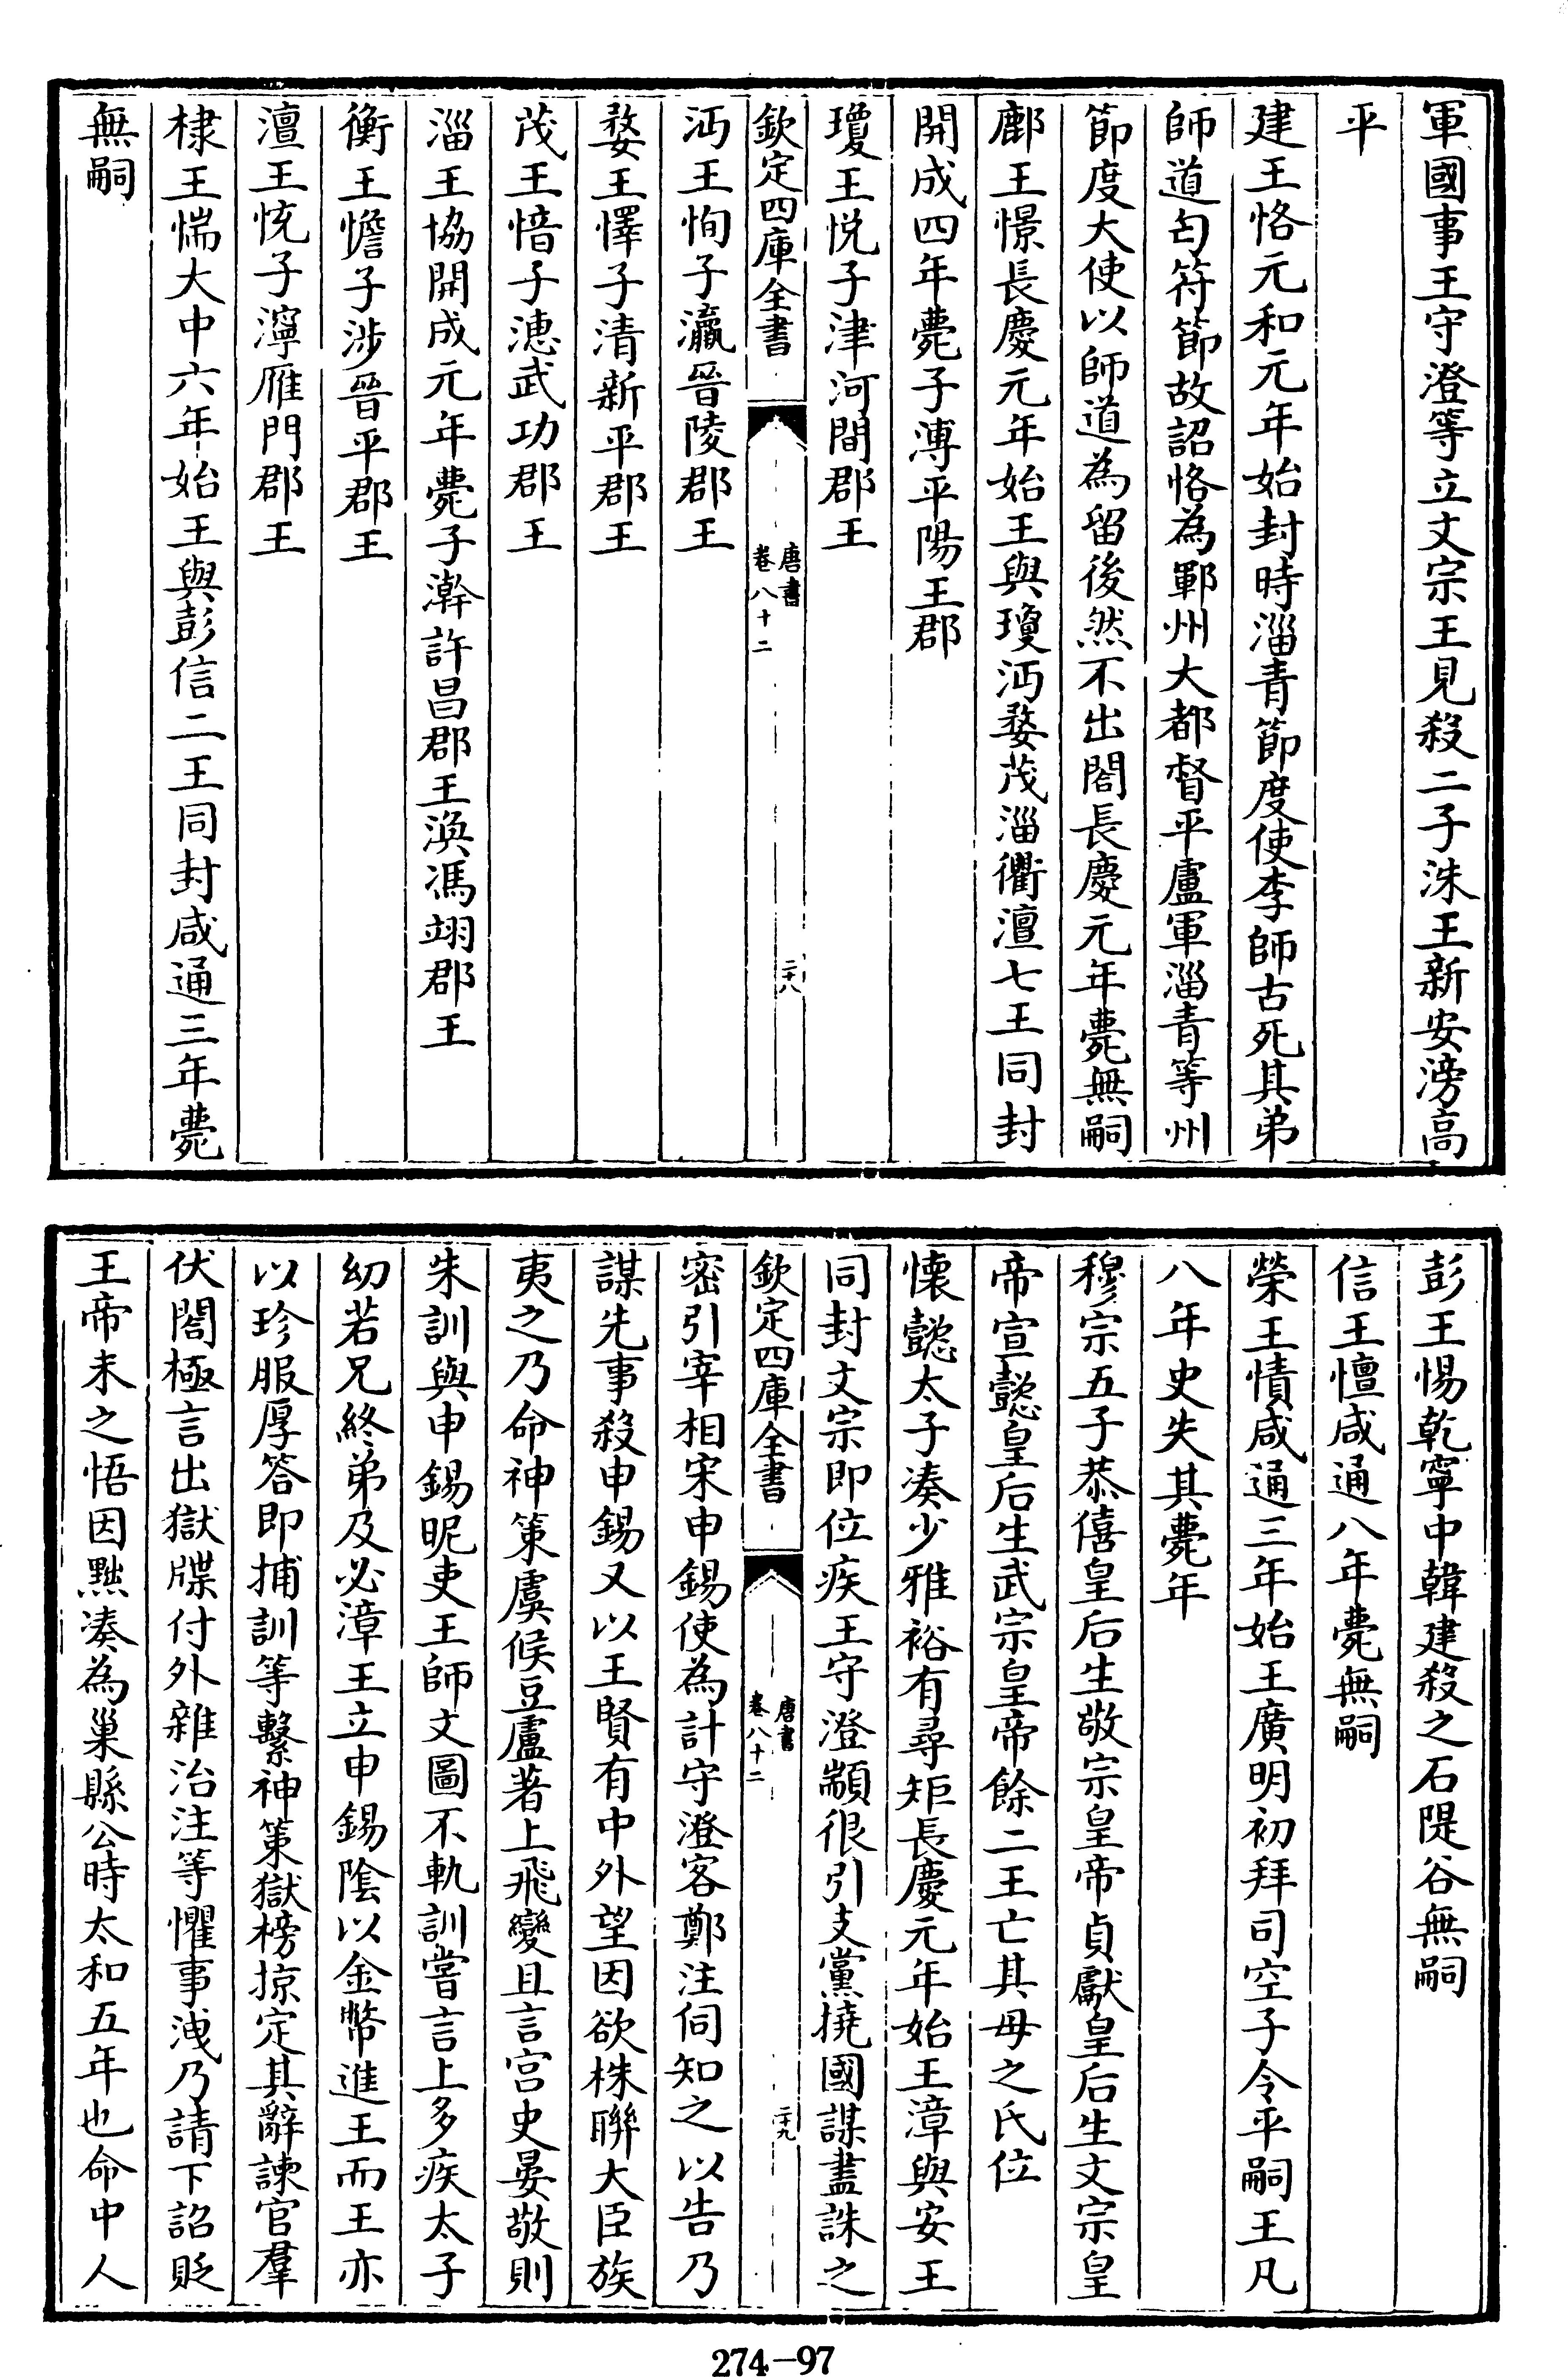 軍國事王守澄等立文宗王見殺二子洙王新安滂高
平
建王恪元和元年始封時淄青節度使李師古死其弟
師道匄符節故詔恪為鄆州大都督平盧軍淄青等州
節度大使以師道為留後然不出閤長慶元年薨無嗣
鄜王憬長慶元年始王與瓊沔婺茂淄衢澶七王同封
開成四年薨子溥平陽王郡
瓊王悦子津河間郡王
欽定四庫全書
唐書
卷八十二
二十八
沔王恂子瀛晉陵郡王
婺王懌子清新平郡王
茂王愔子潓武功郡王
淄王協開成元年薨子澣許昌郡王渙馮翊郡王
衡王憺子涉晉平郡王
澶王㤝子濘雁門郡王
棣王惴大中六年始王與彭信二王同封咸通三年薨
無嗣
彭王惕乾寧中韓建殺之石隄谷無嗣
信王憻咸通八年薨無嗣
榮王㥽咸通三年始王廣明初拜司空子令平嗣王凡
八年史失其薨年
穆宗五子恭僖皇后生敬宗皇帝貞獻皇后生文宗皇
帝宣懿皇后生武宗皇帝餘二王亡其母之氏位
懐懿太子湊少雅裕有尋矩長慶元年始王漳與安王
同封文宗即位疾王守澄顓很引支黨撓國謀盡誅之
欽定四庫全書
唐書
卷八十二
二十九
密引宰相宋申錫使為計守澄客鄭注伺知之以告乃
謀先事殺申錫又以王賢有中外望因欲株聯大臣族
夷之乃命神策虞候豆盧著上飛變且言宫史晏敬則
朱訓與申錫昵吏王師文圖不軌訓嘗言上多疾太子
幼若兄終弟及必漳王立申錫陰以金幣進王而王亦
以珍服厚答即捕訓等繫神策獄榜掠定其辭諫官羣
伏閤極言出獄牒付外雜治注等懼事洩乃請下詔貶
王帝未之悟因黜湊為巢縣公時太和五年也命中人
274-97